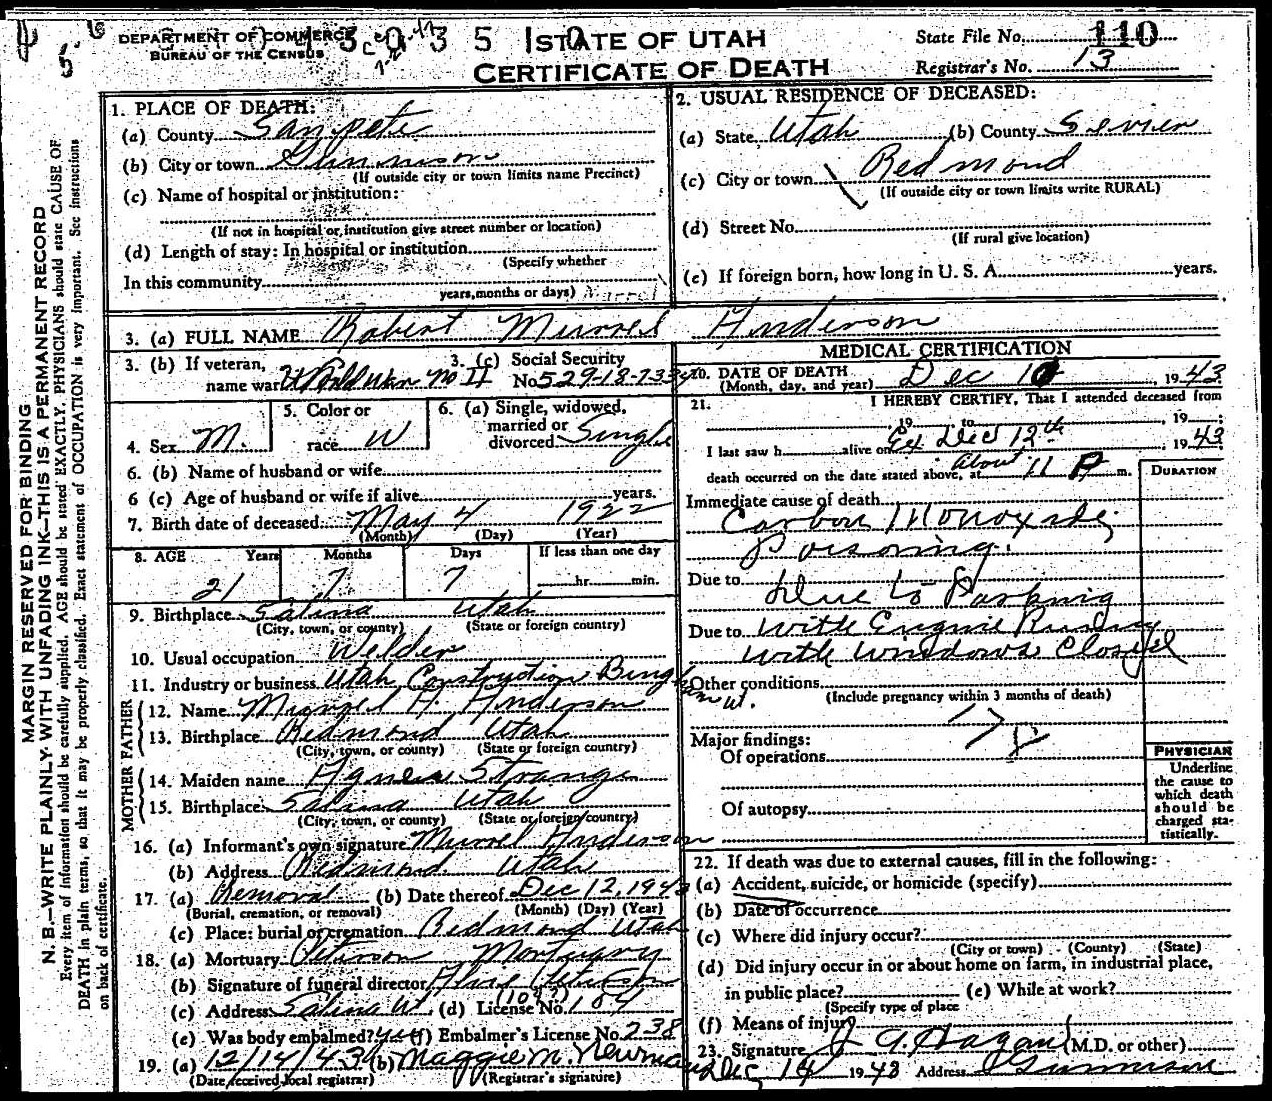 DEPARTMENT OF COMMERCE
BUREAU OF THE CENSUS
3 0 3 5
STATE OF UTAH
CERTIFICATE OF DEATH
State File No. 110
Registrar's No. 13
MARGIN RESERVED FOR BINDING
N. B.—WRITE PLAINLY WITH UNFADING INK—THIS IS A PERMANENT RECORD
Every item of information should be carefully supplied. AGE should be stated EXACTLY. PHYSICIANS should state CAUSE OF
DEATH in plain terms, so that it may be properly classified. Exact statement of OCCUPATION is very important. See instructions
on back of certificate.
1. PLACE OF DEATH:
(a) County Sanpete
(b) City or town Gunnison
(If outside city or town limits name Precinct)
(c) Name of hospital or institution:
(If not in hospital or institution give street number or location)
(d) Length of stay: In hospital or institution
(Specify whether
In this community
years, months or days)
2. USUAL RESIDENCE OF DECEASED:
(a) State Utah (b) County Sevier
(c) City or town Redmond
(If outside city or town limits write RURAL)
(d) Street No.
(If rural give location)
(e) If foreign born, how long in U. S. A. years.
3. (a) FULL NAME Robert Murrel Anderson
3. (b) If veteran, name war World War no II
3. (c) Social Security No. 529-18-733
4. Sex M.
5. Color or race W
6. (a) Single, widowed, married or divorced Single
6. (b) Name of husband or wife
6 (c) Age of husband or wife if alive years.
7. Birth date of deceased May 4 1922
(Month) (Day) (Year)
8. AGE Years Months Days If less than one day
21 7 7 hr. min.
9. Birthplace Salina Utah
(City, town, or county) (State or foreign country)
10. Usual occupation Welder
11. Industry or business Utah Construction Bingham Ut.
FATHER
12. Name Murrel H. Anderson
13. Birthplace Redmond Utah
(City, town, or county) (State or foreign country)
MOTHER
14. Maiden name Agnes Strange
15. Birthplace Salina Utah
(City, town, or county) (State or foreign country)
16. (a) Informant's own signature Murrel Anderson
(b) Address Redmond Utah
17. (a) Removal (b) Date thereof Dec 12, 1943
(Burial, cremation, or removal) (Month) (Day) (Year)
(c) Place: burial or cremation Redmond Utah
18. (a) Mortuary Peterson Mortuary
(b) Signature of funeral director
(c) Address Salina Ut. (d) License No. 104
(e) Was body embalmed? yes (f) Embalmer's License No. 238
19. (a) 12/14/43 (b) Maggie M. Newman
(Date received local registrar) (Registrar's signature)
MEDICAL CERTIFICATION
20. DATE OF DEATH
(Month, day, and year) Dec 1943
21. I HEREBY CERTIFY, That I attended deceased from
19 to 19
I last saw h alive on Dec 12th 1943
death occurred on the date stated above, at About 11 P m.
DURATION
Immediate cause of death
Carbon Monoxide
Poisoning.
Due to Due to Parking
Due to With Engine Running
With Windows Closed
Other conditions
(Include pregnancy within 3 months of death)
Major findings:
Of operations
Of autopsy
PHYSICIAN
Underline
the cause to
which death
should be
charged sta-
tistically.
22. If death was due to external causes, fill in the following:
(a) Accident, suicide, or homicide (specify)
(b) Date of occurrence
(c) Where did injury occur?
(City or town) (County) (State)
(d) Did injury occur in or about home on farm, in industrial place,
in public place? (e) While at work?
(Specify type of place
(f) Means of injury
23. Signature J. G. Hagan (M.D. or other)
Dec 14 1943 Address Gunnison